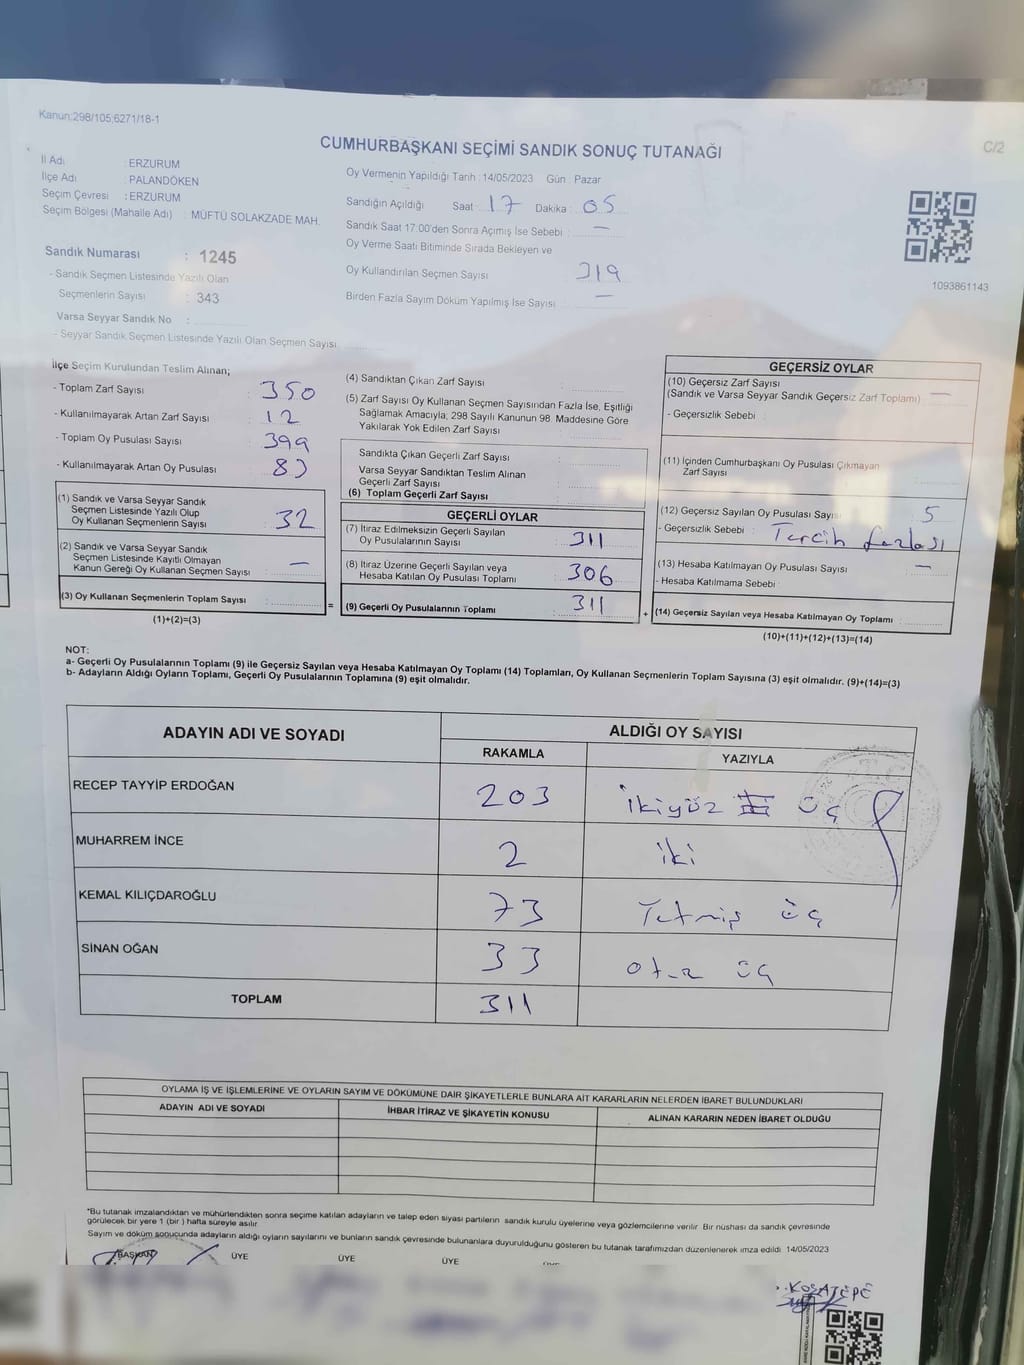 Kanun:298/105;6271/18-1
CUMHURBAŞKANI SEÇİMİ SANDIK SONUÇ TUTANAĞI
C/2
İl Adı : ERZURUM
İlçe Adı : PALANDÖKEN
Seçim Çevresi : ERZURUM
Seçim Bölgesi (Mahalle Adı) : MÜFTÜ SOLAKZADE MAH.
Sandık Numarası : 1245
- Sandık Seçmen Listesinde Yazılı Olan
Seçmenlerin Sayısı : 343
Varsa Seyyar Sandık No :
- Seyyar Sandık Seçmen Listesinde Yazılı Olan Seçmen Sayısı
Oy Vermenin Yapıldığı Tarih :14/05/2023 Gün : Pazar
Sandığın Açıldığı Saat : 17 Dakika : 05
Sandık Saat 17:00'den Sonra Açımış İse Sebebi : —
Oy Verme Saati Bitiminde Sırada Bekleyen ve
Oy Kullandırılan Seçmen Sayısı 319
Birden Fazla Sayım Döküm Yapılmış İse Sayısı : —
1093861143
İlçe Seçim Kurulundan Teslim Alınan;
- Toplam Zarf Sayısı : 350
- Kullanılmayarak Artan Zarf Sayısı : 12
- Toplam Oy Pusulası Sayısı : 399
- Kullanılmayarak Artan Oy Pusulası : 83
(1) Sandık ve Varsa Seyyar Sandık
Seçmen Listesinde Yazılı Olup
Oy Kullanan Seçmenlerin Sayısı : 32
(2) Sandık ve Varsa Seyyar Sandık
Seçmen Listesinde Kayıtlı Olmayan
Kanun Gereği Oy Kullanan Seçmen Sayısı : —
(3) Oy Kullanan Seçmenlerin Toplam Sayısı :
(1)+(2)=(3)
=
(4) Sandıktan Çıkan Zarf Sayısı :
(5) Zarf Sayısı Oy Kullanan Seçmen Sayısından Fazla İse, Eşitliği
Sağlamak Amacıyla; 298 Sayılı Kanunun 98. Maddesine Göre
Yakılarak Yok Edilen Zarf Sayısı :
Sandıkta Çıkan Geçerli Zarf Sayısı :
Varsa Seyyar Sandıktan Teslim Alınan
Geçerli Zarf Sayısı :
(6) Toplam Geçerli Zarf Sayısı :
GEÇERLİ OYLAR
(7) İtiraz Edilmeksizin Geçerli Sayılan
Oy Pusulalarının Sayısı : 311
(8) İtiraz Üzerine Geçerli Sayılan veya
Hesaba Katılan Oy Pusulası Toplamı : 306
(9) Geçerli Oy Pusulalarının Toplamı : 311
+
GEÇERSİZ OYLAR
(10) Geçersiz Zarf Sayısı
(Sandık ve Varsa Seyyar Sandık Geçersiz Zarf Toplamı) —
- Geçersizlik Sebebi :
(11) İçinden Cumhurbaşkanı Oy Pusulası Çıkmayan
Zarf Sayısı :
(12) Geçersiz Sayılan Oy Pusulası Sayısı 5
- Geçersizlik Sebebi : Tercih fazlası
(13) Hesaba Katılmayan Oy Pusulası Sayısı : —
- Hesaba Katılmama Sebebi :
(14) Geçersiz Sayılan veya Hesaba Katılmayan Oy Toplamı :
(10)+(11)+(12)+(13)=(14)
NOT:
a- Geçerli Oy Pusulalarının Toplamı (9) ile Geçersiz Sayılan veya Hesaba Katılmayan Oy Toplamı (14) Toplamları, Oy Kullanan Seçmenlerin Toplam Sayısına (3) eşit olmalıdır. (9)+(14)=(3)
b- Adayların Aldığı Oyların Toplamı, Geçerli Oy Pusulalarının Toplamına (9) eşit olmalıdır.
ADAYIN ADI VE SOYADI
ALDIĞI OY SAYISI
RAKAMLA YAZIYLA
RECEP TAYYİP ERDOĞAN 203 ikiyüz üç
MUHARREM İNCE 2 iki
KEMAL KILIÇDAROĞLU 73 Yetmiş üç
SİNAN OĞAN 33 otuz üç
TOPLAM 311
OYLAMA İŞ VE İŞLEMLERİNE VE OYLARIN SAYIM VE DÖKÜMÜNE DAİR ŞİKAYETLERLE BUNLARA AİT KARARLARIN NELERDEN İBARET BULUNDUKLARI
ADAYIN ADI VE SOYADI İHBAR İTİRAZ VE ŞİKAYETİN KONUSU ALINAN KARARIN NEDEN İBARET OLDUĞU
*Bu tutanak imzalandıktan ve mühürlendikten sonra seçime katılan adayların ve talep eden siyasi partilerin sandık kurulu üyelerine veya gözlemcilerine verilir. Bir nüshası da sandık çevresinde
görülecek bir yere 1 (bir ) hafta süreyle asılır.
Sayım ve döküm sonucunda adayların aldığı oyların sayılarını ve bunların sandık çevresinde bulunanlara duyurulduğunu gösteren bu tutanak tarafımızdan düzenlenerek imza edildi. 14/05/2023
BAŞKAN ÜYE ÜYE ÜYE
KOŞATEPE